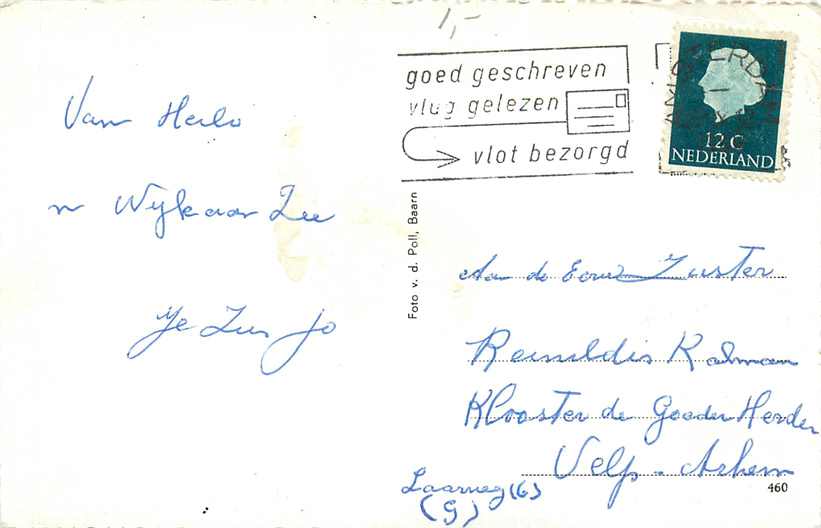 1,-
goed geschreven
vlug gelezen
vlot bezorgd
12 C
NEDERLAND
Van Heilo
n Wijk aan Zee
Je Zus Jo
Foto v. d. Poll, Baarn
Aan de Eerw Zuster
Reinildis Kalman
Klooster de Goeder Herder
Velp. Arhem
Laarweg (6)
(G)
460